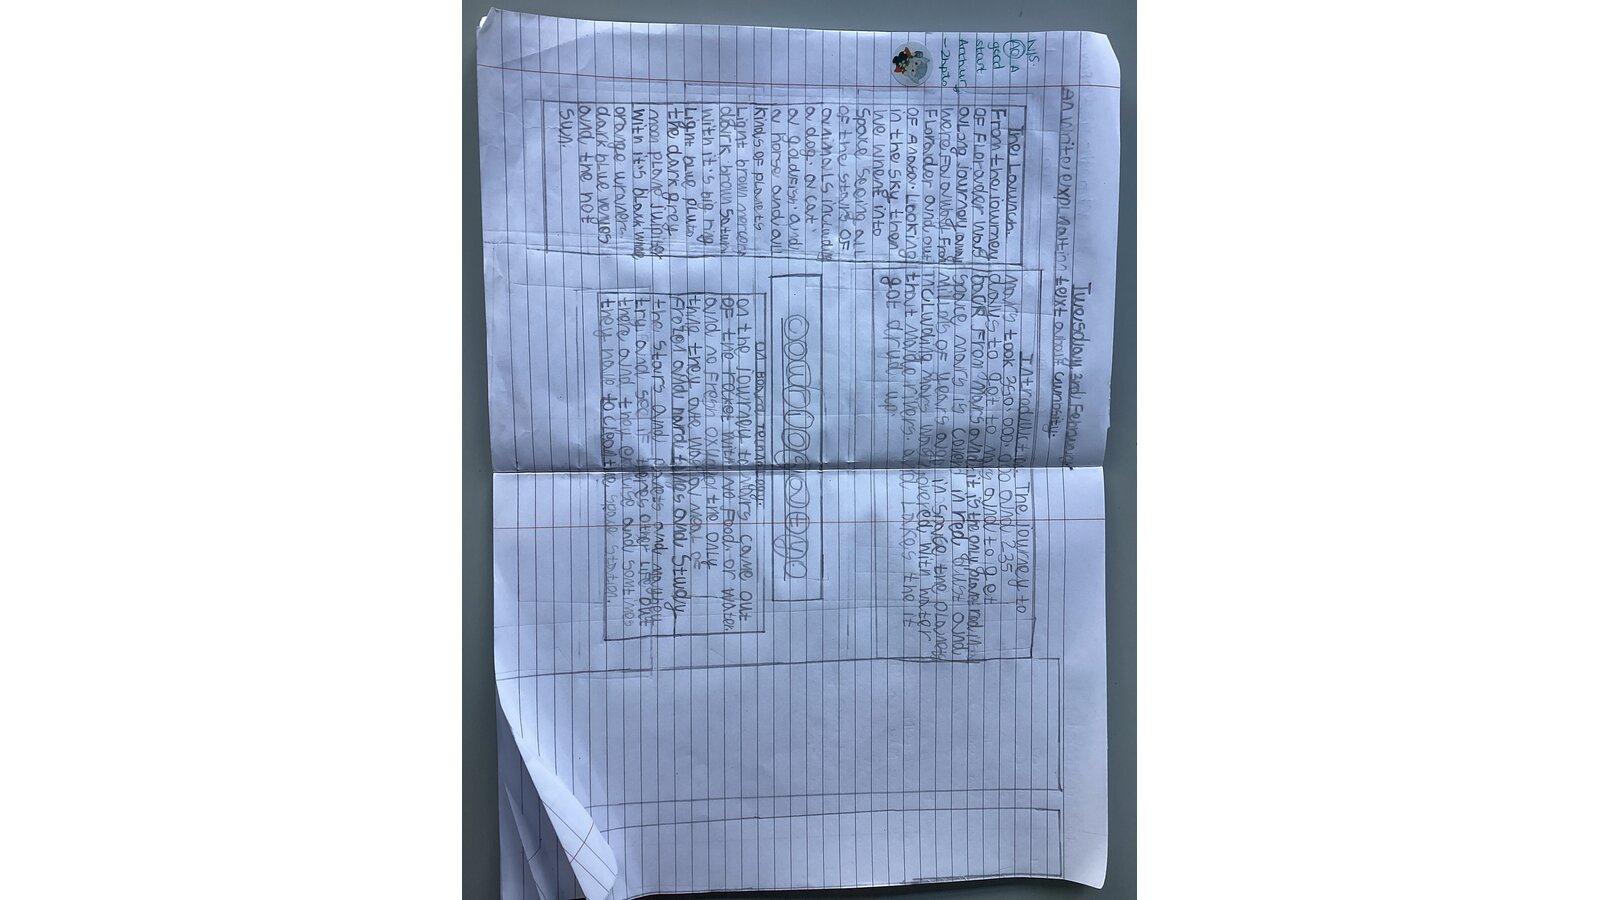 Tuesday 3rd February
text about curiosity.
W/S.
AO A
good
start
- 2hpts
The Launch.
From the journey
of Floraider was
a long journey away
were far away from
Floraider and out
in the sky then
we whent into
space seeing all
of the stars of
animals including
a dog. a cat.
a goldfish. and
a horse and all
kinds of planets
Light brown
dark brown saturn
with it's big ring
Light blue pluto
the dark grey
moon
with it's black
orange
dark blue
and the hot
sun.
The journey to
mars took 350 000.000 and 235
days to get to mars and to get
back from mars and it is the only planet
space mars is caverd in red dust and
millions of years ago in space the planets
including mars was coverd with water
that made rivers. and Lakes the it
got dryd up.
On Board
on the journey to mars came out
of the rocket with no food. or water.
and no fresh oxygen the only
thing they ate was a meal of
frozen and hard and study
the stars and planets and
try and see if theres other life out
there and they and somtimes
they have to clean the space station.